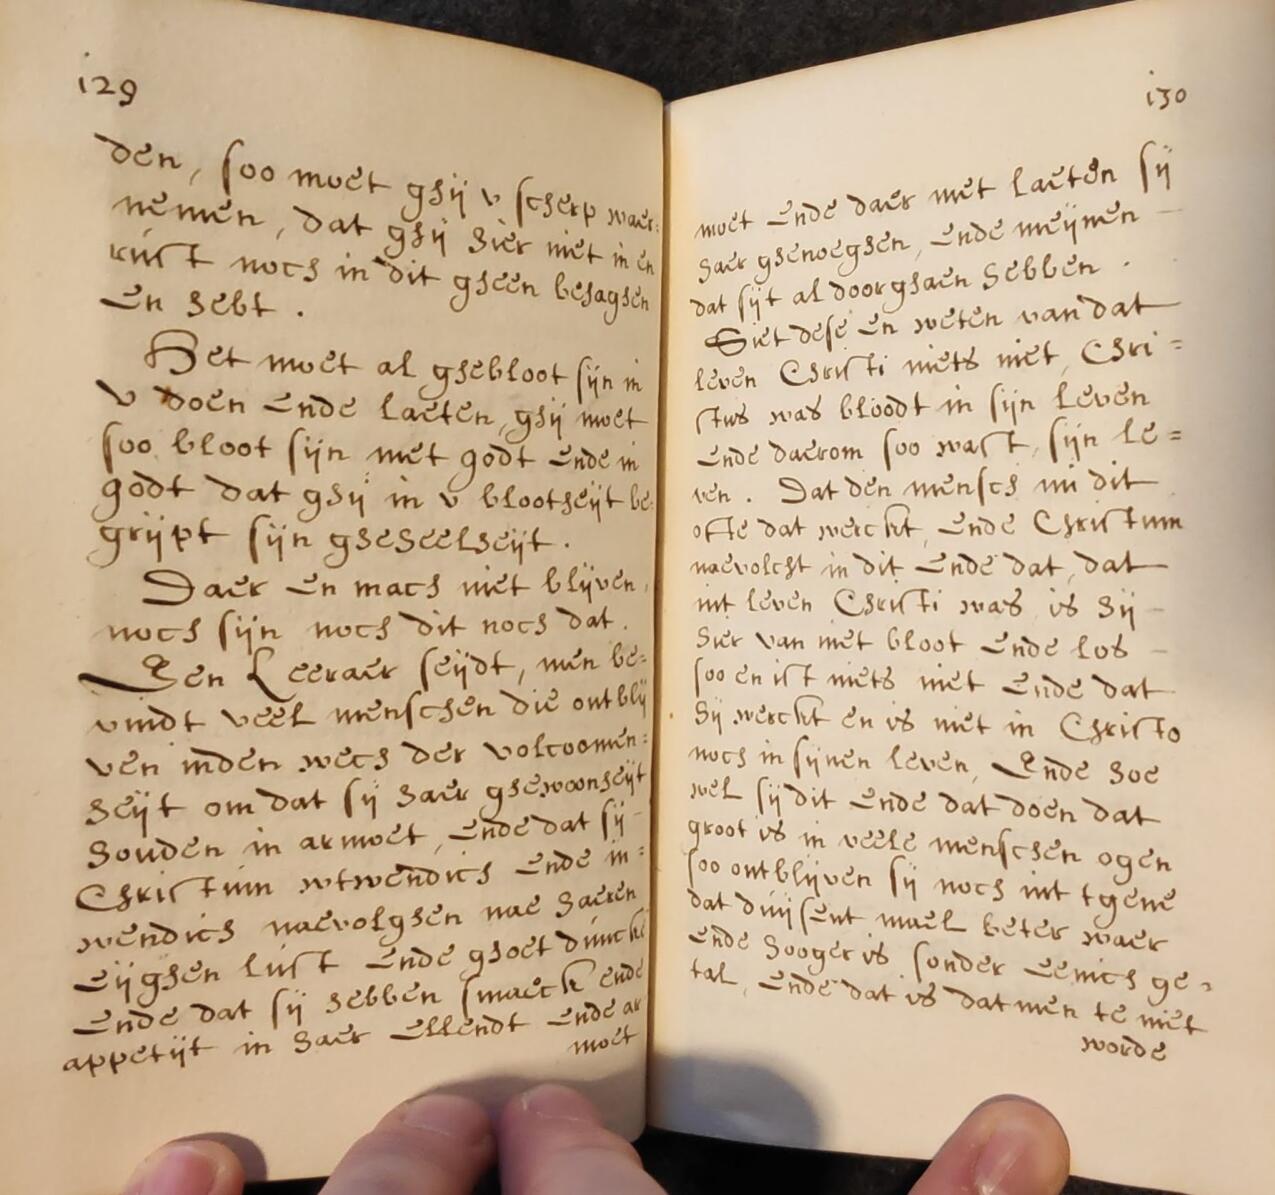 129
den, soo moet ghij v scherp waer:
nemen, dat ghij hier niet in en
rust noch in dit gheen behaghen
en hebt.
Het moet al ghebloot sijn in
v doen ende laeten, ghij moet
soo bloot sijn met godt ende in
godt dat ghij in v blootheijt be:
grijpt sijn gheheelheijt.
Daer en mach niet blijven,
noch sijn noch dit noch dat.
Een Leeraer seijdt, men be=
vindt veel menschen die ontblij
ven inden wech der volcoomen=
heijt om dat sij haer ghewoonheijt
houden in armoet, ende dat sij
Christum wtwendich ende in=
wendich naevolghen nae haeren
eijghen lust ende ghoet dunck
ende dat sij hebben smaeck ende
appetijt in haer ellendt ende ar
moet
130
moet ende daer met laeten sij
haer ghenoeghen, ende meijnen
dat sijt al doorghaen hebben.
Siet dese en weten van dat
leven Christi niets niet, Chri=
stus was bloodt in sijn leven
ende daerom soo wast, sijn le=
ven. Dat den mensch nu dit
ofte dat werckt, ende Christum
naevolcht in dit ende dat, dat
int leven Christi was is hij
hier van niet bloot ende los
soo en ist niets niet ende dat
hij werckt en is niet in Christo
noch in sijnen leven, Ende hoe
wel sij dit ende dat doen dat
groot is in veele menschen ogen
soo ontblijven sij noch int tgene
dat duijsent mael beter waer
ende hooger is sonder eenich ge=
tal, ende dat is dat men te niet
worde